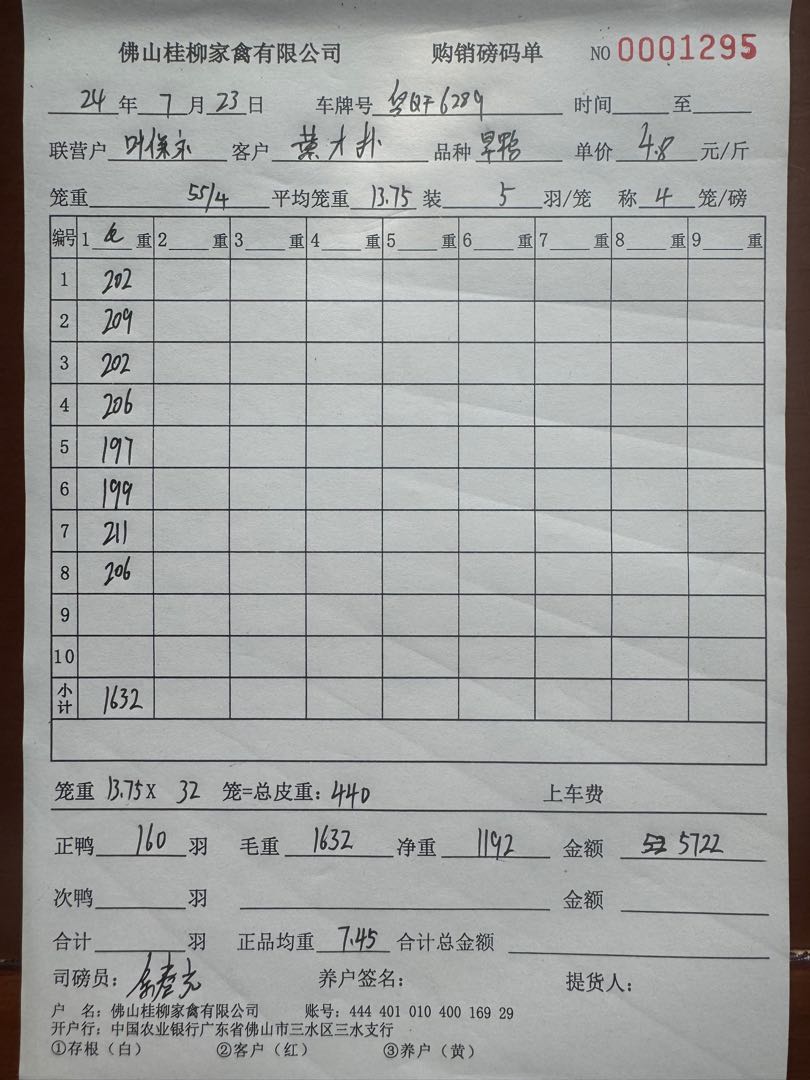 佛山桂柳家禽有限公司 购销磅码单 NO 0001295
24年7月23日 车牌号 6289 时间 至
联营户 叶保 客户 叶才扑 品种 旱鸭 单价 4.8 元/斤
笼重 55/4 平均笼重 13.75 装 5 羽/笼 称 4 笼/磅
编号 1 毛 重 2 重 3 重 4 重 5 重 6 重 7 重 8 重 9 重
1 202
2 209
3 202
4 206
5 197
6 199
7 211
8 206
9
10
小计 1632
笼重 13.75 X 32 笼=总皮重: 440 上车费
正鸭 160 羽 毛重 1632 净重 1192 金额 5722
次鸭 羽 金额
合计 羽 正品均重 7.45 合计总金额
司磅员: 养户签名: 提货人:
户 名: 佛山桂柳家禽有限公司 账号: 444 401 010 400 169 29
开户行: 中国农业银行广东省佛山市三水区三水支行
①存根（白） ②客户（红） ③养户（黄）